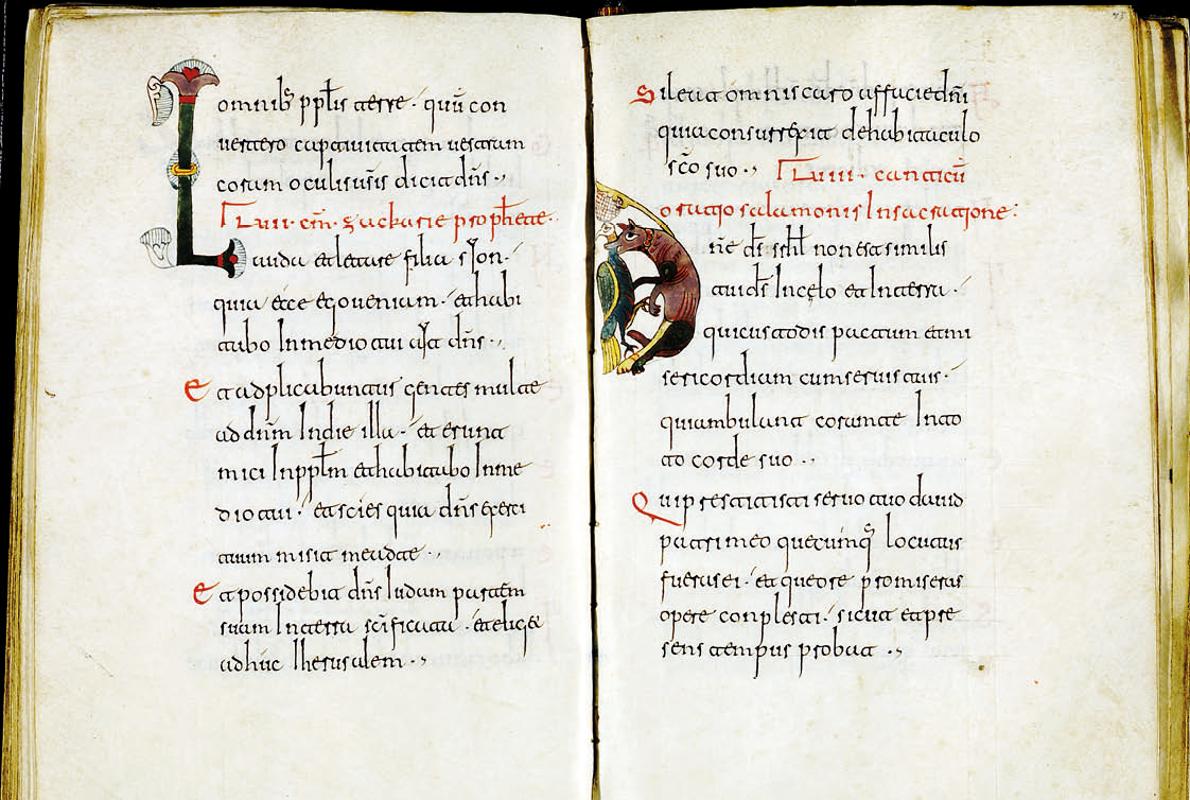 omnibꝰ pplis terre · quū con
uertero captiuitatem uestram
coram oculis uis̄ dicit dn̄s ·,
LVII · cm̄ · zackarie prophete ·
Lauda et letare filia sion ·
quia ecce ego ueniam · et habi
tabo In medio tui ait dn̄s ·,
Et adplicabuntur gentes multe
ad dn̄m In die illa · et erunt
mici In pplm et habitabo In me
dio tui · et scies quia dn̄s exerci
tuum misit me ad te ·,
Et possidebit dn̄s Iudam partem
suam In terra scīficata · et eliget
adhuc Iherusalem ·,
Sileat omnis caro a facie dn̄i
quia consurrexit de habitaculo
sc̄o suo ·, LVIII · canticū
oratio salamonis In sacratione :
Dn̄e ds̄ srhl non est similis
tui ds̄ In celo et In terra ·
qui custodis pactum et mi
sericordiam cum seruis tuis ·
qui ambulant coram te In to
to corde suo ·,
Qui prestitisti seruo tuo dauid
patri meo quecumq̄ locutus
fueras ei · et que ore promiseras
opere conplesti · sicut et pre
sens tempus probat ·,